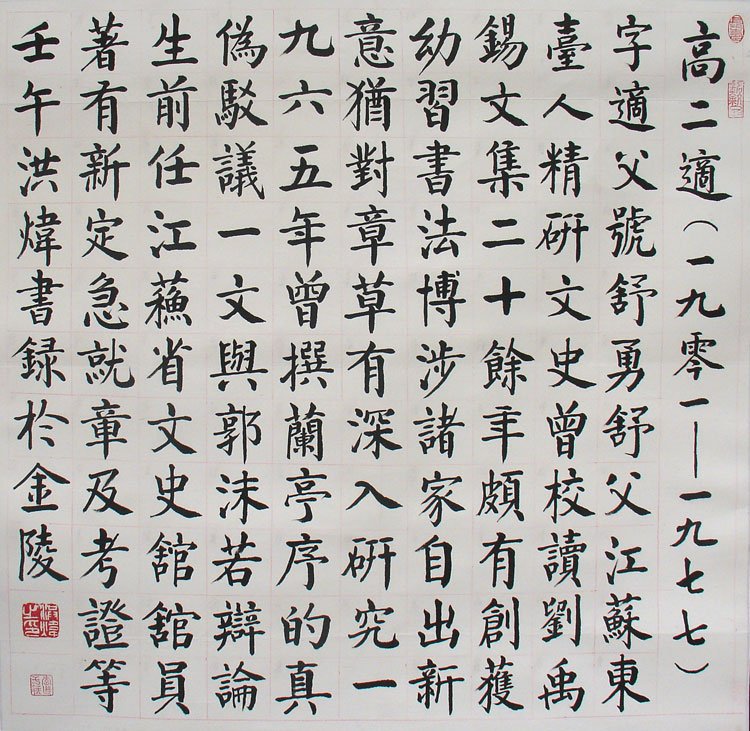 高二適（一九零一——一九七七）
字適父號舒勇舒父江蘇東
臺人精研文史曾校讀劉禹
錫文集二十餘年頗有創獲
幼習書法博涉諸家自出新
意猶對章草有深入研究一
九六五年曾撰蘭亭序的真
偽駁議一文與郭沫若辯論
生前任江蘓省文史舘舘員
著有新定急就章及考證等
壬午洪煒書録於金陵